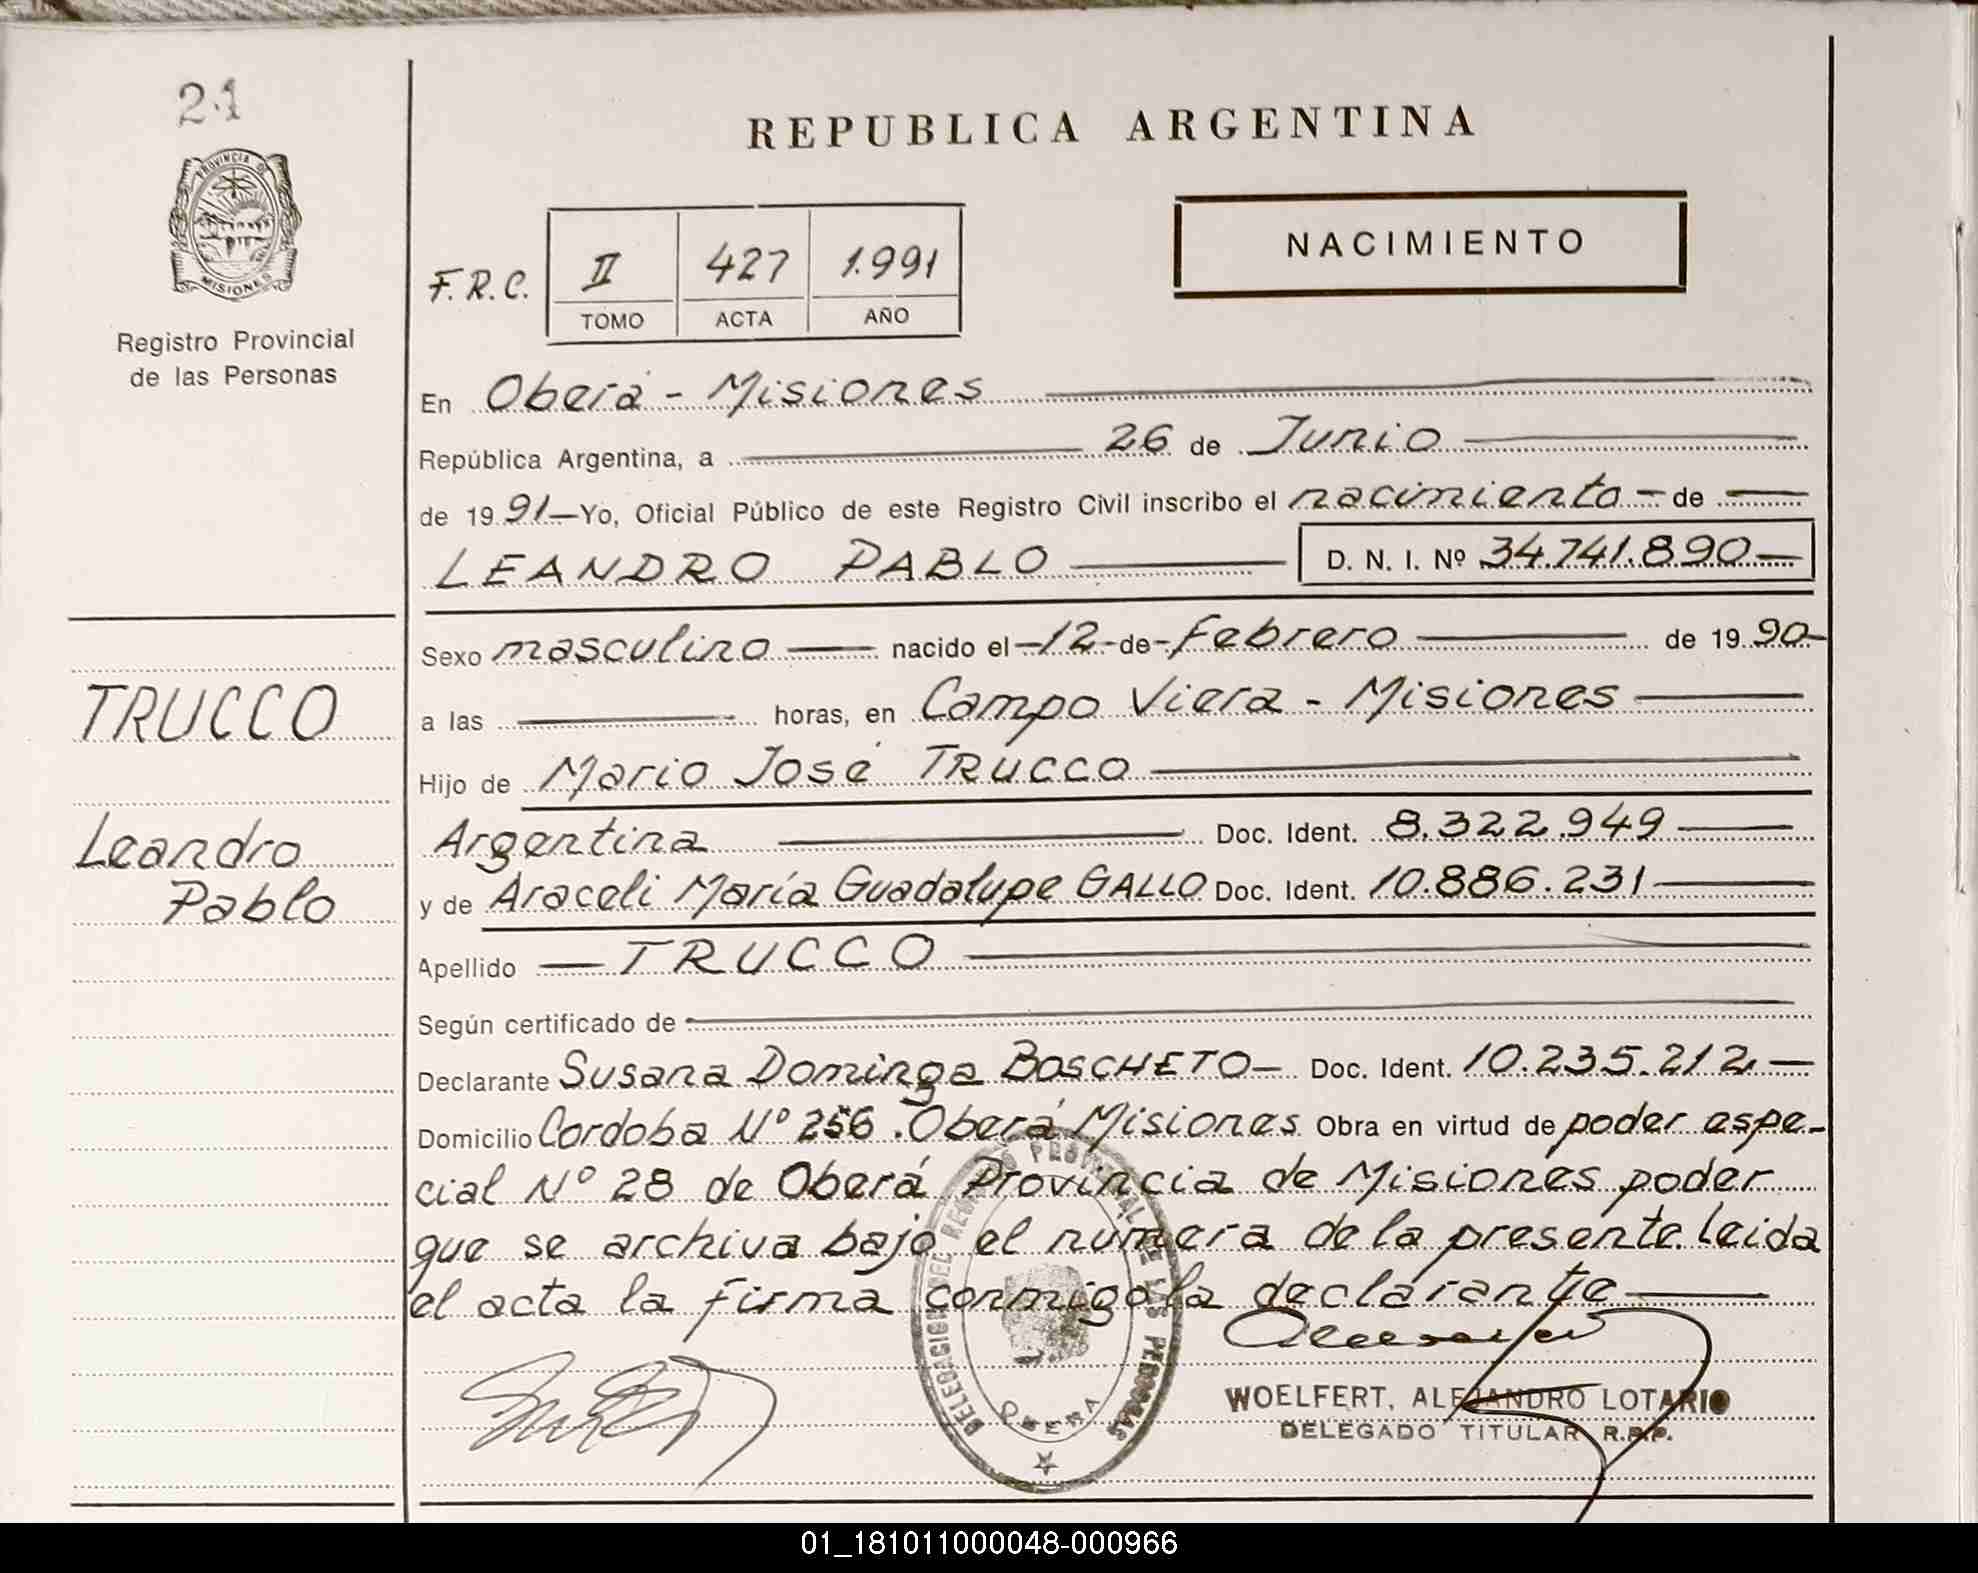 21
PROVINCIA DE
MISIONES
Registro Provincial
de las Personas
TRUCCO
Leandro
Pablo
REPUBLICA ARGENTINA
NACIMIENTO
F.R.C. II 427 1.991
TOMO ACTA AÑO
En Oberá - Misiones
República Argentina, a 26 de Junio
de 1991 Yo, Oficial Público de este Registro Civil inscribo el nacimiento de
LEANDRO PABLO D. N. I. Nº 34.741.890
Sexo masculino nacido el 12 de Febrero de 1990
a las horas, en Campo Viera - Misiones
Hijo de Mario José TRUCCO
Argentina Doc. Ident. 8.322.949
y de Araceli María Guadalupe GALLO Doc. Ident. 10.886.231
Apellido TRUCCO
Según certificado de
Declarante Susana Dominga BOSCHETO Doc. Ident. 10.235.212
Domicilio Cordoba Nº 256. Oberá Misiones Obra en virtud de poder espe-
cial Nº 28 de Oberá Provincia de Misiones poder
que se archiva bajo el numera de la presente. leida
el acta la firma conmigo la declarante
DELEGACION DEL REGISTRO PROVINCIAL DE LAS PERSONAS
OBERA
WOELFERT, ALEJANDRO LOTARIO
DELEGADO TITULAR R.P.P.
01_181011000048-000966